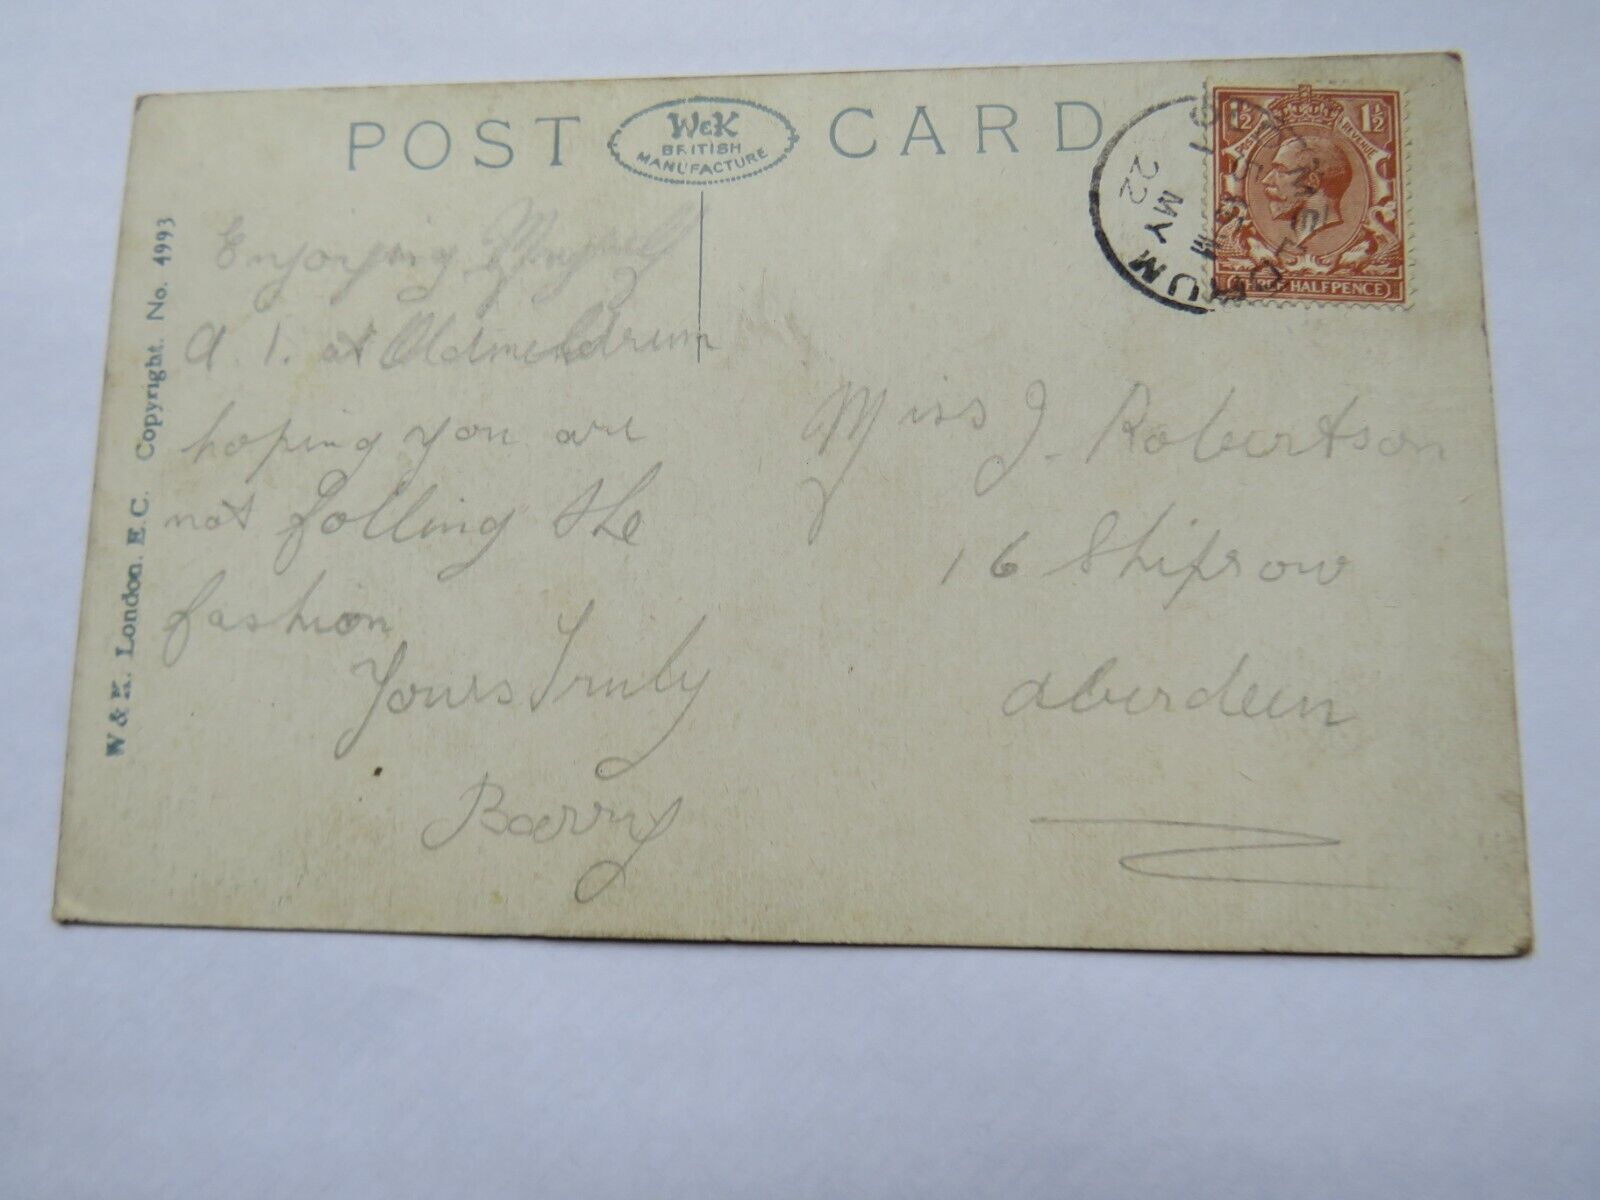 POST CARD
W&K
BRITISH
MANUFACTURE
Enjoying Myself
A.1. at Oldmeldrum
hoping you are
not folling the
fashion
Yours Truly
Barry
Miss J. Robertson
16 Shiprow
Aberdeen
W & K. London. E.C. Copyright. No. 4993
1½ 1½
POSTAGE REVENUE
THREE HALFPENCE
MY
22